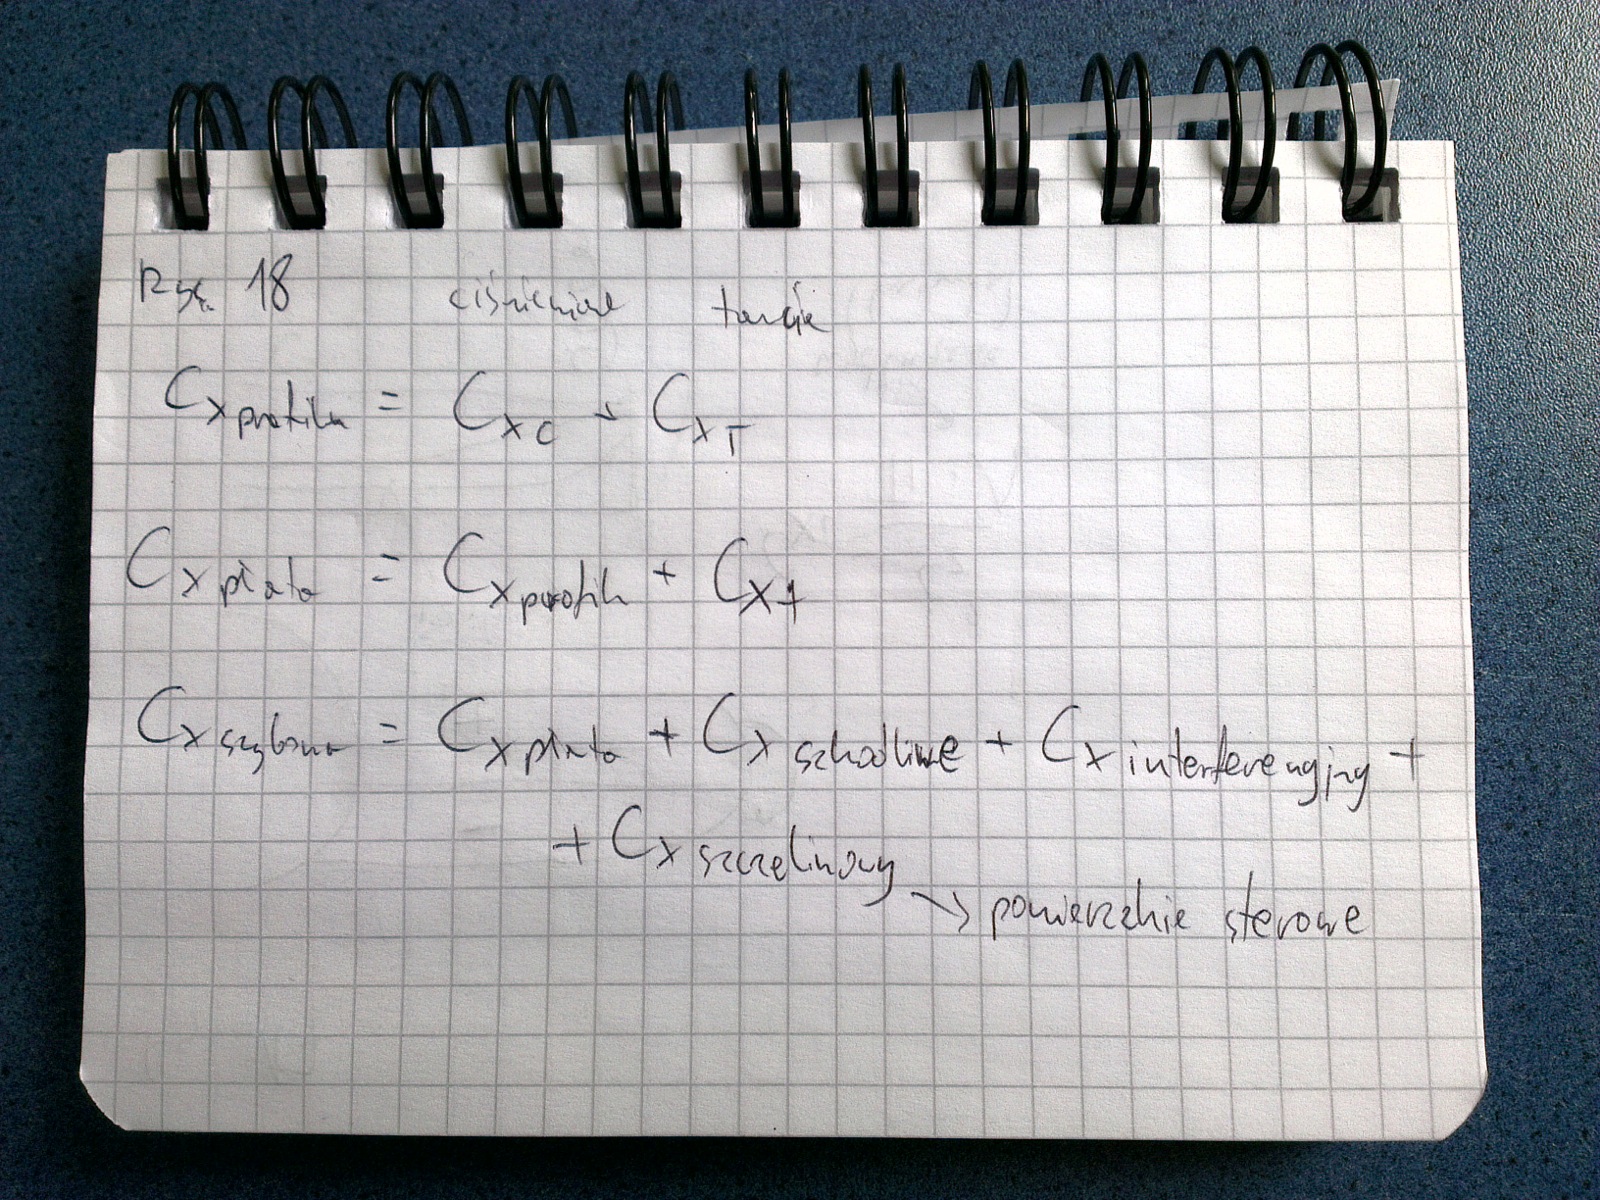 Rys. 18 ciśnieniowe tarcie
Cx profilu = Cx C + Cx T
Cx płata = Cx profilu + Cx
Cx szybowca = Cx płata + Cx szkodliwe + Cx interferencyjny +
+ Cx szczelinowy → powierzchnie sterowe